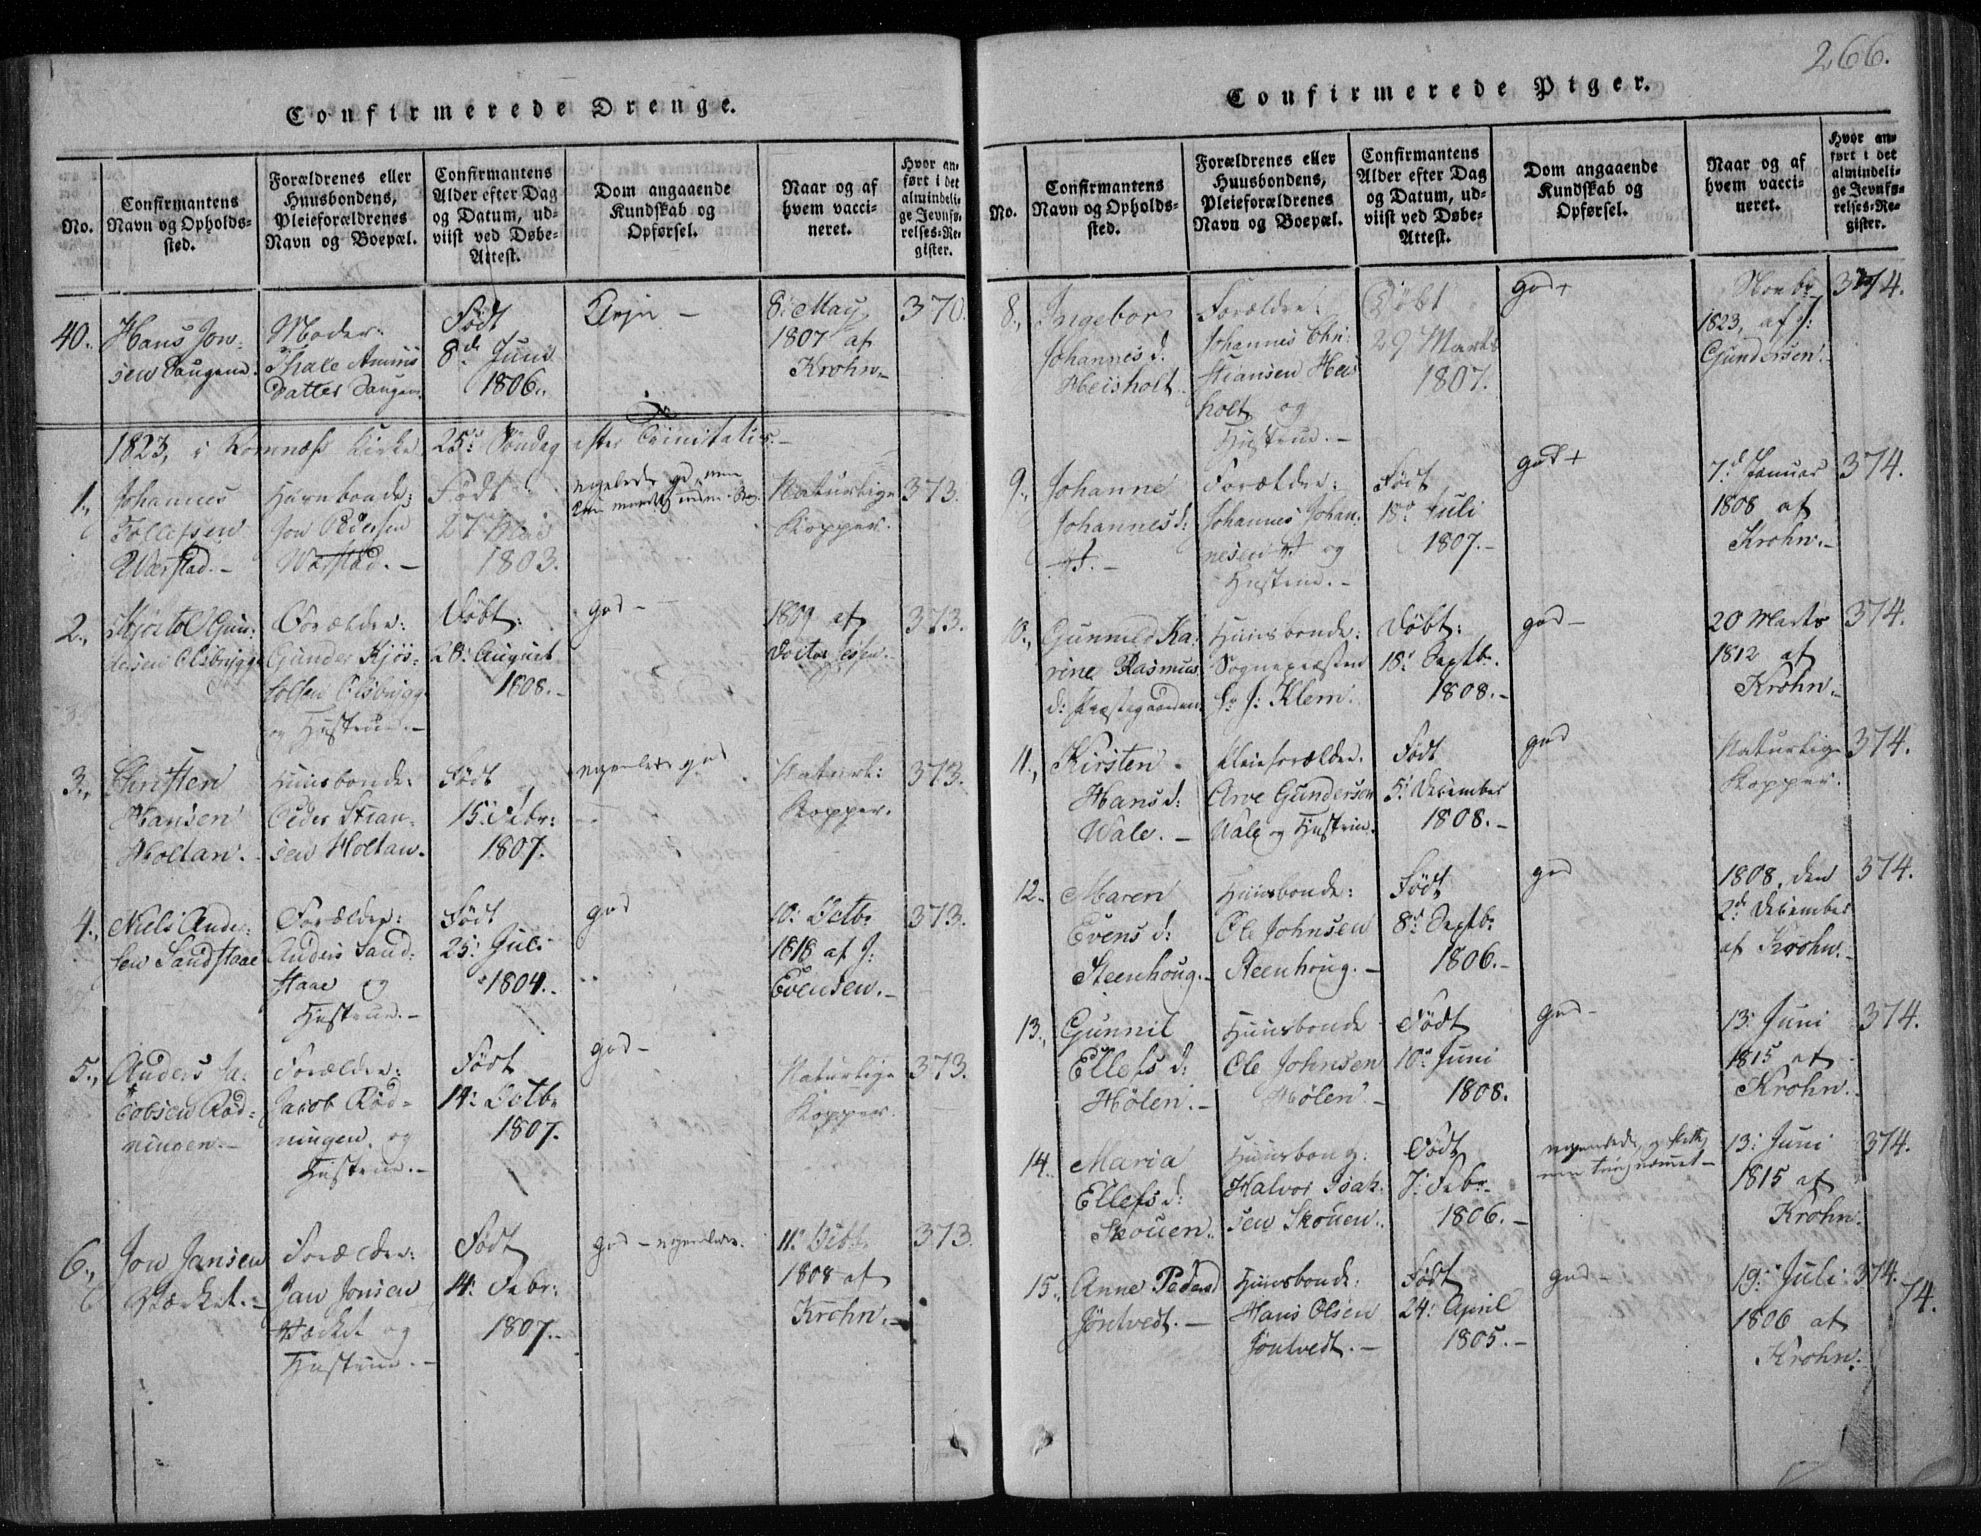 266.
Confirmerede Drenge.
No.
Confirmantens
Navn og Opholds-
sted.
Forældrenes eller
Huusbondens,
Pleieforældrenes
Navn og Boepæl.
Confirmantens
Alder efter Dag
og Datum, ud-
viist ved Døbe-
Attest.
Dom angaaende
Kundskab og
Opførsel.
Naar og af
hvem vacci-
neret.
Hvor an-
ført i det
almindeli-
ge Jevnfø-
relses-Re-
gister.
40.
Hans Jon-
sen Saugene.
Moder:
Thale
datter Saugen.
Født
8de Juni
1806.
8: May
1807 af
Krohn.
370.
1823, i Romnæss Kirke 25de Søndag efter Trinitatis.
1.,
Johannes
Tolefsen
Værstad.
Huusbonde:
Jon Pedersen
Værstad.
Født
27 Mai
1803.
Naturlige
Kopper.
373.
2.,
Kjøstol Gun-
dersen Olsbrygge
Forældre:
Gunder Kjøs-
tolsen Olsbrygge
og Hustrue.
Døbt:
28: August
1808.
god
1809 af
Doctor
373.
3.,
Christen
Hansen
Holtan.
Huusbonde:
Peder Stian-
sen Holtan.
Født
15: Febr:
1807.
nogenledes god
Naturl:
Kopper.
373.
4.,
Niels Ander-
sen Sandstaae
Forældre:
Anders Sand-
staae og
Hustrue.
Født
25: Juli
1804.
god
10: Octbr
1818 af J:
Evensen.
373.
5.,
Anders Ja-
cobsen Rød-
ningen.
Forældre:
Jacob Rød-
ningen, og
Hustrue.
Født
14: Octbr
1807.
god
Naturlige
Kopper.
373.
6.,
Jon Jansen
Værket.
Forældre:
Jan Jonsen
Værket og
Hustrue.
Født
14: Febr:
1807.
god - nogenledes.
11: Octbr
1808 af
Krohn.
373.
Confirmerede Piger.
No.
Confirmantens
Navn og Opholds-
sted.
Forældrenes eller
Huusbondens,
Pleieforældrenes
Navn og Boepæl.
Confirmantens
Alder efter Dag
og Datum, ud-
viist ved Døbe-
Attest.
Dom angaaende
Kundskab og
Opførsel.
Naar og af
hvem vacci-
neret.
Hvor an-
ført i det
almindeli-
ge Jevnfø-
relses-Re-
gister.
8.,
Ingebor
Johannesd:
Heisholt.
Forældre:
Johannes Chri-
stiansen Heis-
holt og
Hustrue.
Døbt
29 Marts
1807.
god +
Novbr
1823, af J:
Gundersen.
374.
9.,
Johanne
Johannesd:
Forældre:
Johannes Johan-
nesen og
Hustrue.
Født
18de Juli
1807.
god +
7d Januar
1808 af
Krohn.
374.
10.,
Gunnild Ka-
rine Rasmus-
d: Præstegaarden.
Huusbonde:
Sognepræsten
Hr J: Klem.
Døbt:
18: Septbr.
1808.
god
20 Marts
1812 af
Krohn.
374.
11.,
Kirsten
Hansd:
Wale.
Pleieforældre.
Arve Gundersen
Wale og Hustrue.
Født
5: December
1808.
god
Naturlige
Kopper.
374.
12.
Maren
Evensd:
Steenhoug.
Huusbonde:
Ole Johnsen
Steenhoug.
Født
8de Septbr:
1806.
god
1808, den
2de December
af Krohn.
374.
13.,
Gunnil
Ellefsd:
Hølen.
Huusbonde
Ole Johnsen
Hølen.
Født
10de Juni
1808.
god
13: Juni
1815 af
Krohn.
374.
14.
Maria
Ellefsd:
Skouen.
Huusbond:
Halvor Isak-
sen Skouen.
Født
7: Febr.
1806.
13: Juni
1815 af
Krohn.
374.
15.,
Anne Pedersd
Jøntvedt.
Huusbonde:
Hans Olsen
Jøntvedt.
Født
24: April
1805.
god
19: Juli
1806 af
Krohn.
374.
74.